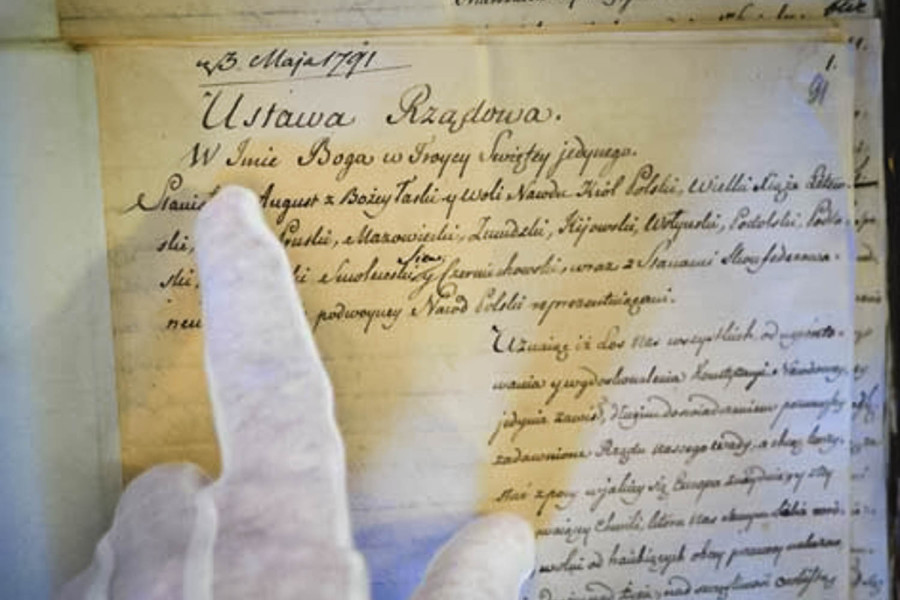 3. Maja 1791
1.
91
Ustawa Rządowa.
W Imie Boga w Troycy Swiętey jedynego.
August z Bożey Łaski y Woli Narodu Król Polski, Wielki Xiąże Litew-
ski, Pruski, Mazowiecki, Zmudzki, Kijowski, Wołynski, Podolski, Podla-
ski, Smolenski, Siew: y Czerniechowski, wraz z Stanami Skonfederowa-
podwoyney Naród Polski reprezentuiącemi.
Uznaiąc iż Los nas wszystkich od ugrunto-
wania y wydoskonalenia Konstytucyi Narodowey
jedynie zawisł, długim doswiadczeniem poznawszy
zadawnione Rządu naszego wady, a chcąc korzy-
stać z pory w jakiey się Europa znayduie, y z tey
chwili, która nas samym sobie wró-
wolni od hańbiących obcey przemocy nakazow
nad życie, nad szczęśliwość osobistą